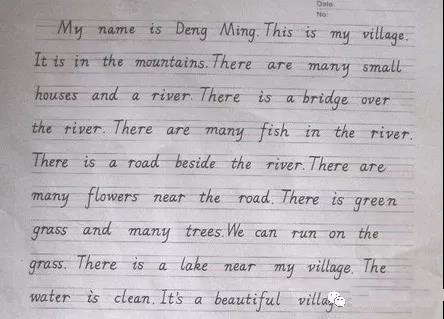 Date.
No:
My name is Deng Ming. This is my village.
It is in the mountains. There are many small
houses and a river. There is a bridge over
the river. There are many fish in the river.
There is a road beside the river. There are
many flowers near the road. There is green
grass and many trees. We can run on the
grass. There is a lake near my village. The
water is clean. It's a beautiful villag